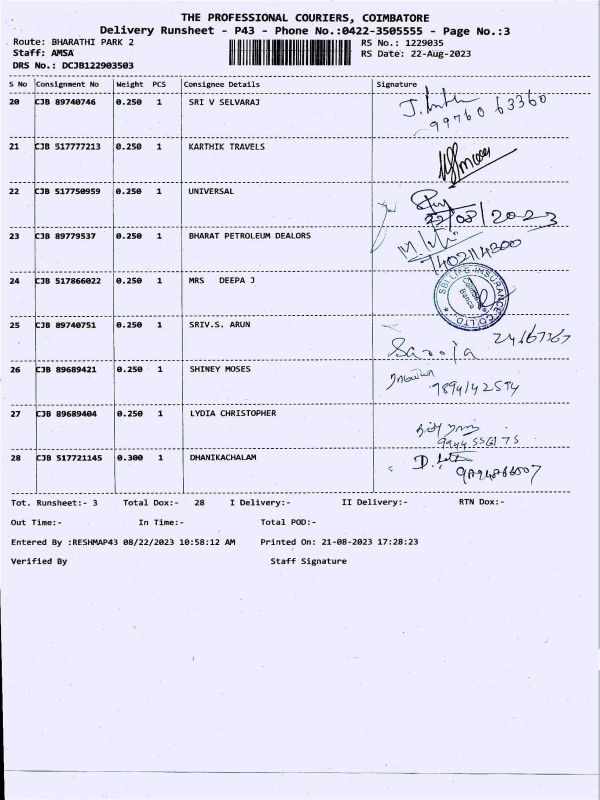 THE PROFESSIONAL COURIERS, COIMBATORE
Delivery Runsheet - P43 - Phone No.:0422-3505555 - Page No.:3
Route: BHARATHI PARK 2 RS No.: 1229035
Staff: AMSA RS Date: 22-Aug-2023
DRS No.: DCJB122903503
S No Consignment No Weight PCS Consignee Details Signature
20 CJB 89740746 0.250 1 SRI V SELVARAJ
99760 63360
21 CJB 517777213 0.250 1 KARTHIK TRAVELS
22 CJB 517750959 0.250 1 UNIVERSAL
22/08/2023
23 CJB 89779537 0.250 1 BHARAT PETROLEUM DEALORS
24 CJB 517866022 0.250 1 MRS DEEPA J
SBI LIFE INSURANCE CO LTD
25 CJB 89740751 0.250 1 SRIV.S. ARUN
Saroja
26 CJB 89689421 0.250 1 SHINEY MOSES
27 CJB 89689404 0.250 1 LYDIA CHRISTOPHER
28 CJB 517721145 0.300 1 DHANIKACHALAM
Tot. Runsheet:- 3 Total Dox:- 28 I Delivery:- II Delivery:- RTN Dox:-
Out Time:- In Time:- Total POD:-
Entered By :RESHMAP43 08/22/2023 10:58:12 AM Printed On: 21-08-2023 17:28:23
Verified By Staff Signature